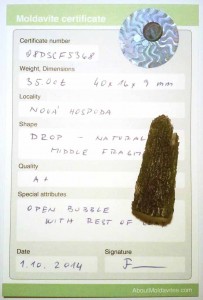 Moldavite certificate
Certificate number
Weight, Dimensions
35.00ct 40 x 16 x 9 mm
Locality
NOVÁ HOSPODA
Shape
DROP - NATURAL
MIDDLE FRAGM
Quality
A+
Special attributes
OPEN BUBBLE
WITH REST OF
Date
Signature
1.10. 2014
AboutMoldavites.com